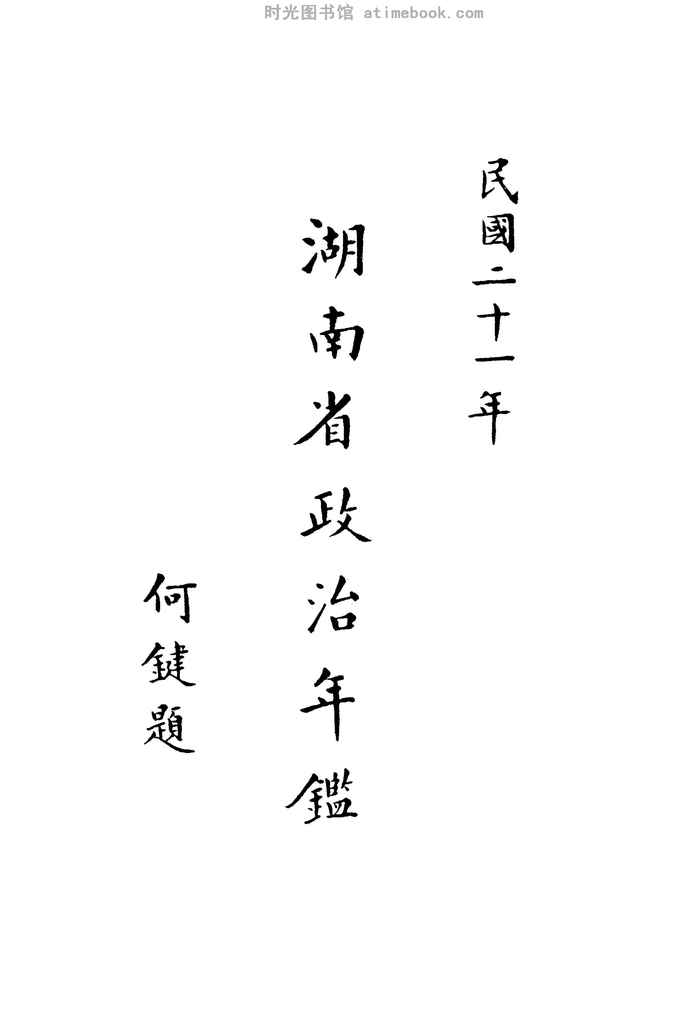 时光图书馆 atimebook.com
民國二十一年
湖南省政治年鑑
何鍵題